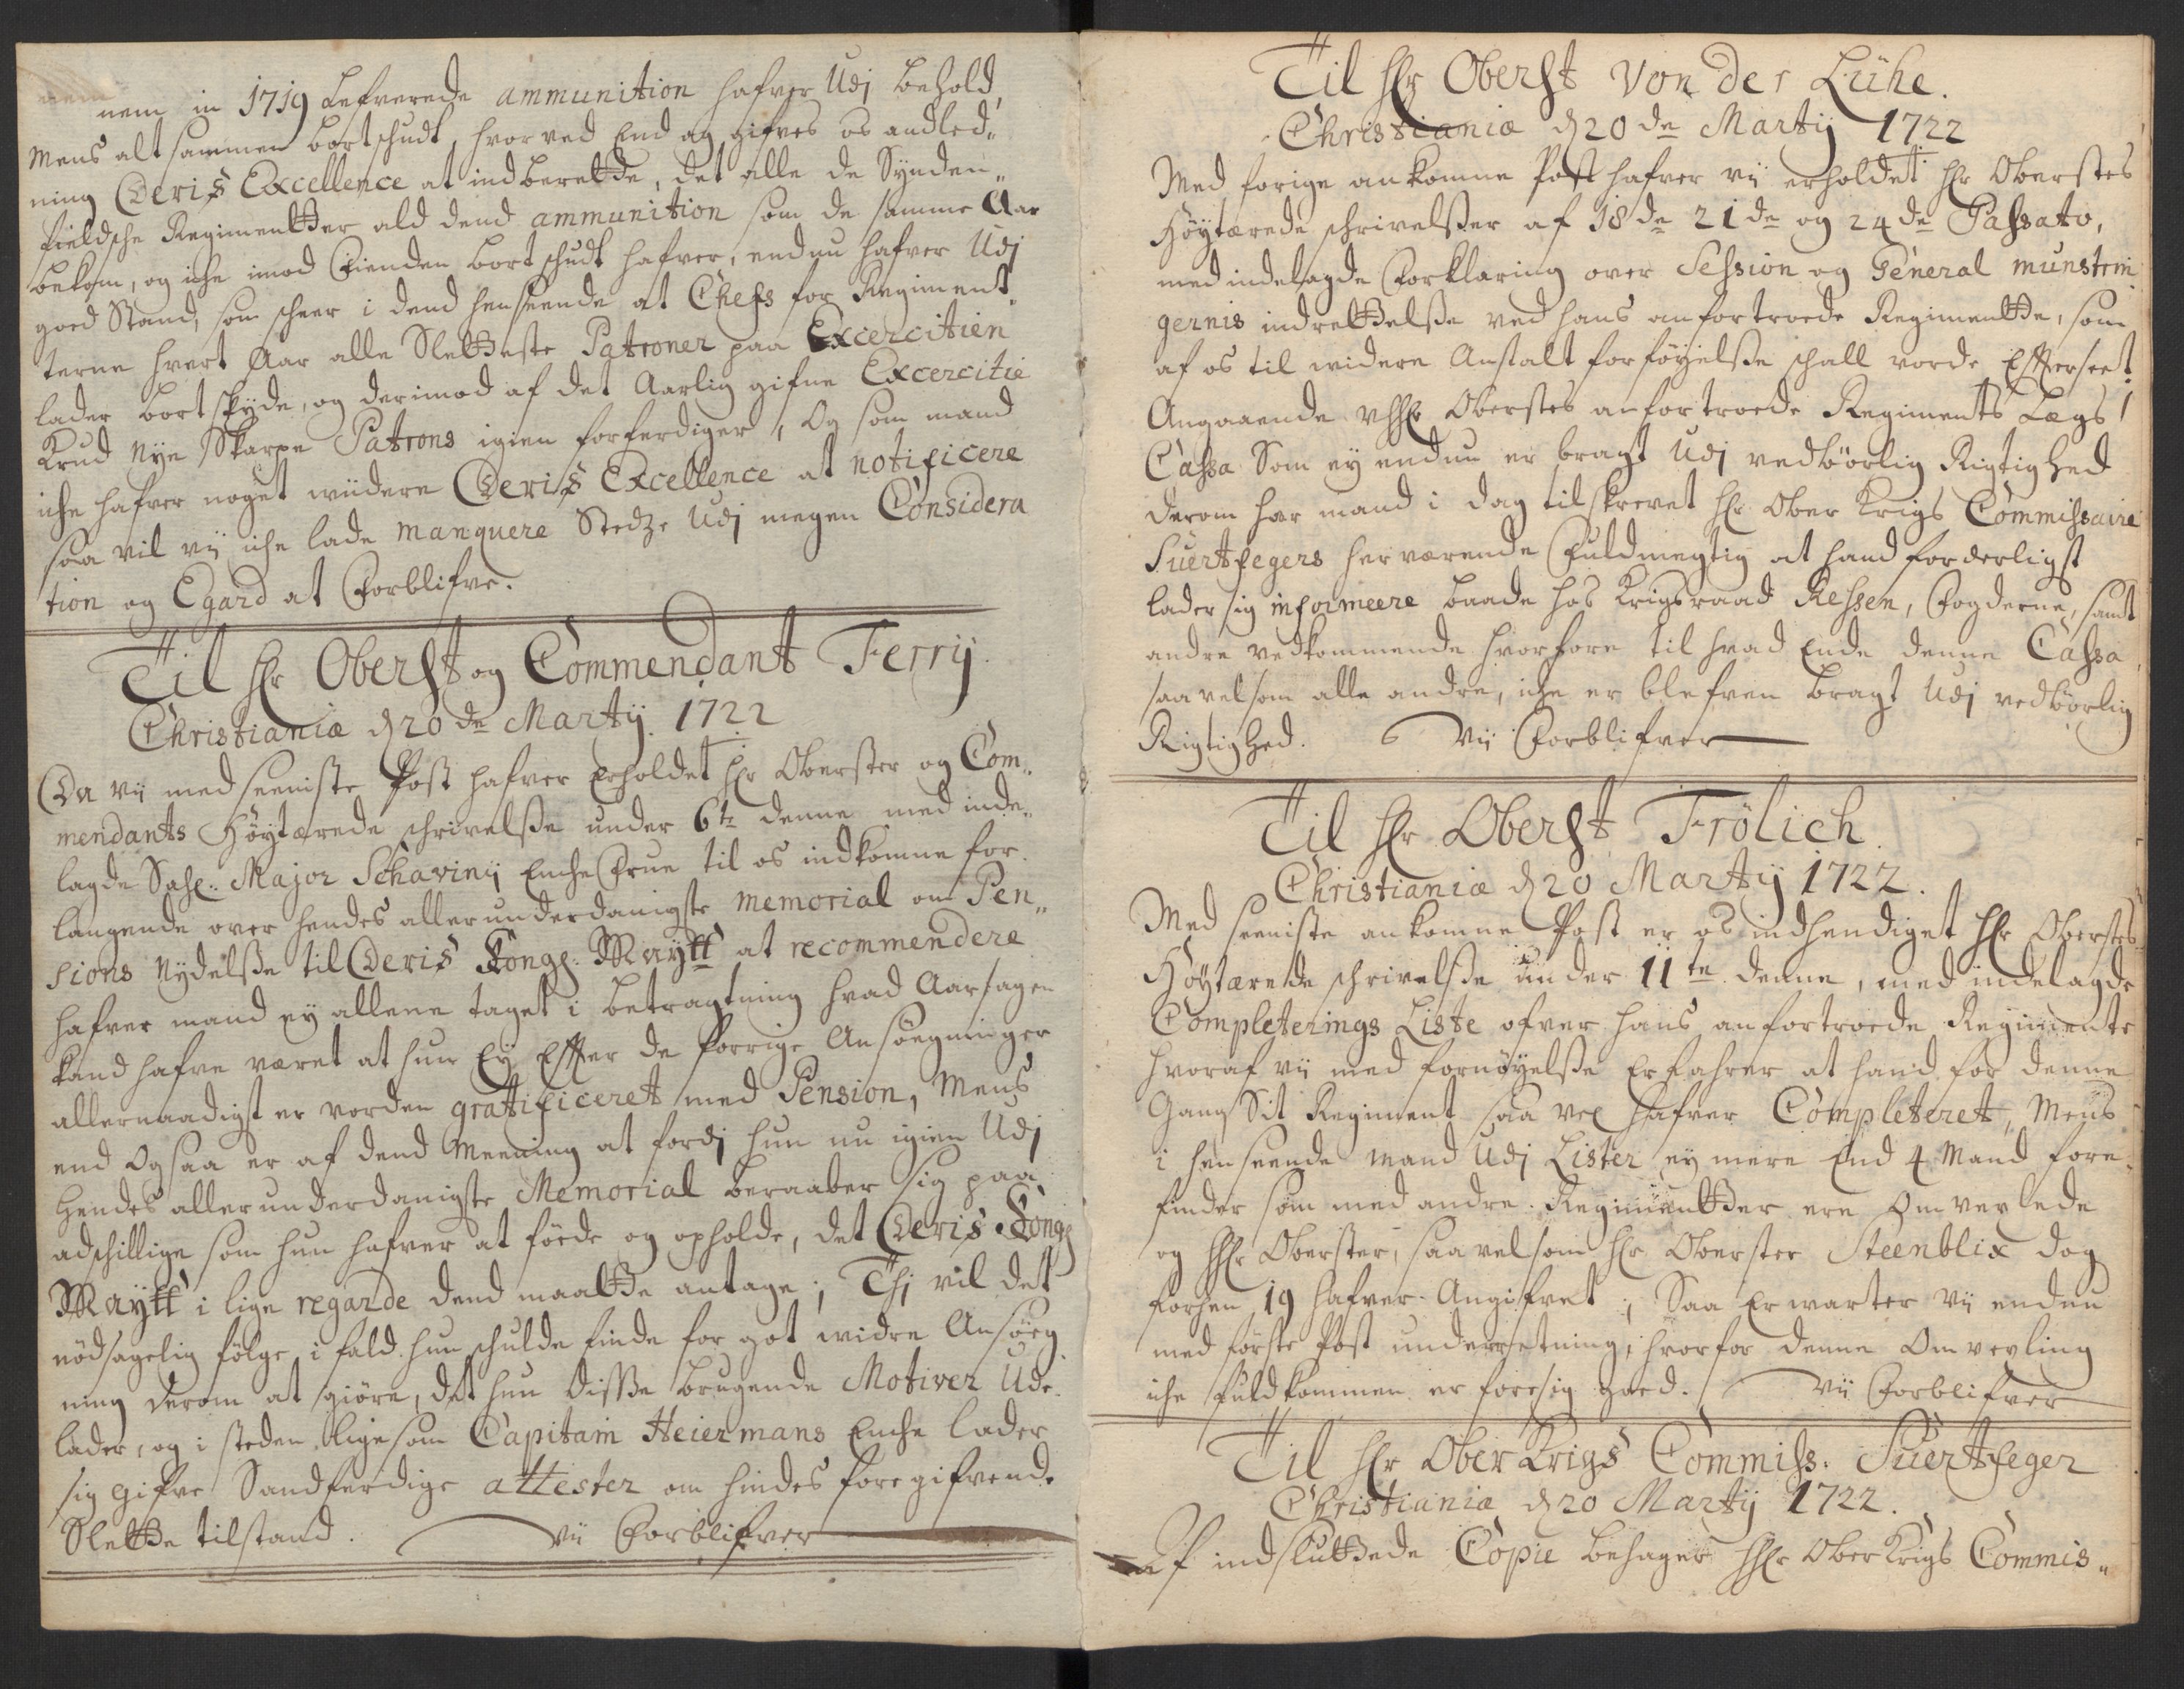 nem in 1719 Lefverede ammunition hafver Udj behold,
Mens alt sammen bortschudt, hvorved End og gifves os andled„
ning Deris Excellence at indberette, det alle de Synden„
fieldsche Regimentter ald dend ammunition som de samme Aar
bekom, og iche imod Fienden bortschudt hafver, endnu hafver Udj
goed Stand, som scheer i dend henseende at Chefs for Regiment„
terne hvert Aar alle Sletteste Patroner paa Excercitien
lader bortskyde, og derimod af det Aarlig gifne Excercitie
Krud Nye Skarpe Patrons igien forferdiger, Og som mand
iche hafver noget widere Deris Excellence at notificere
saa vil vij iche lade manquere Stedze Udj megen Considera
tion og Egard at Forblifve.
Til Hr Oberst og Commendant Ferrij
Christiania d 20de Martij 1722
Da vij med seeniste Post hafver Erholdet Hr Oberster og Com„
mendants Höytærede schrivelsse under 6te denne med inde„
lagde Sahl. Major Schavinij Enche Frue til os indkomne for„
langende over hendes allerunderdanigste memorial om Pen„
sions Nydelsse til Deris Kongl. Maytt at recommendere
hafver mand ey allene taget i betragtning hvad Aarsagen
kand hafve været at hun Ey Effter de forrige Ansöegninger
allernaadigst er vorden gratificeret med Pension, Mens
end Ogsaa er af dend Meening at fordj hun nu igien Udj
Hendes allerunderdanigste Memorial beraaber sig paa
adschillige som hun hafver at föede og opholde, det Deris Kongl
Maytt i lige regarde dend maatte antage; Thj vil det
nödsagelig fölge i fald hun schulde finde for got widre Ansöeg
ning derom at giöre, det hun disse brugende Motiver Ude„
lader, og i steden ligesom Capitain Heiermans Enche lader
sig gifve Sandferdige attester om hindes foregifvende
Slette tilstand. Vij Forblifver
Til Hr Oberst Von der Lühe.
Christiania d 20de Martij 1722
Med forige ankomne Post hafver vij erholdet Hr Oberstes
Höytærede schrivelsser af 18de 21de og 24de Passato,
med indelagde Forklaring over Session og General munstrin
gernis indrettelsse ved hans anfortroede Regimentte, som
af os til widere Anstalt forföyelsse schall vorde Efferseet.
Angaaende HHr Oberstes anfortroede Regiments Lægs
Cassa Som ey endnu er bragt Udj vedböorlig Rigtighed
derom har mand i dag tilskrevet Hr Ober Krigs Commissaire
Suertfegers herværende Fuldmegtig at hand forderligst
lader sig informeere baade hos Krigsraad Ressen, Fogderne, samt
andre vedkommende hvorfore til hvad Ende denne Cassa,
saavelsom alle andre, iche er blefven bragt Udj vedböorlig
Rigtighed. Vij Forblifver
Til Hr Oberst Frölich.
Christiania d 20 Martij 1722.
Med seeniste ankomne Post er os indhendiget HHr Oberstes
Höytærede schrivelsse under 11te denne, med indelagde
Completerings Liste ofver hans anfortroede Regimente
hvoraf vij med fornöyelsse Erfahrer at hand for denne
Gang Sit Regiment saa vel hafver Completeret, Mens
i henseende mand Udj Lister ey mere End 4 Mand fore„
finder som med andre Regimentter ere Omvexlede
og HHr Oberster, saavelsom Hr Oberster Steenblix dog
forhen 19 hafver Angifvet; Saa Erwarter vij endnu
med förste Post underretning, hvorfor denne Omvexling
iche fuldkommen er foresig gaaed. Vij Forblifver
Til Hr Ober Krigs Commiss: Suertfeger
Christiania d 20 Martij 1722.
Af indsluttede Copie behager HHr Ober Krigs Commis„